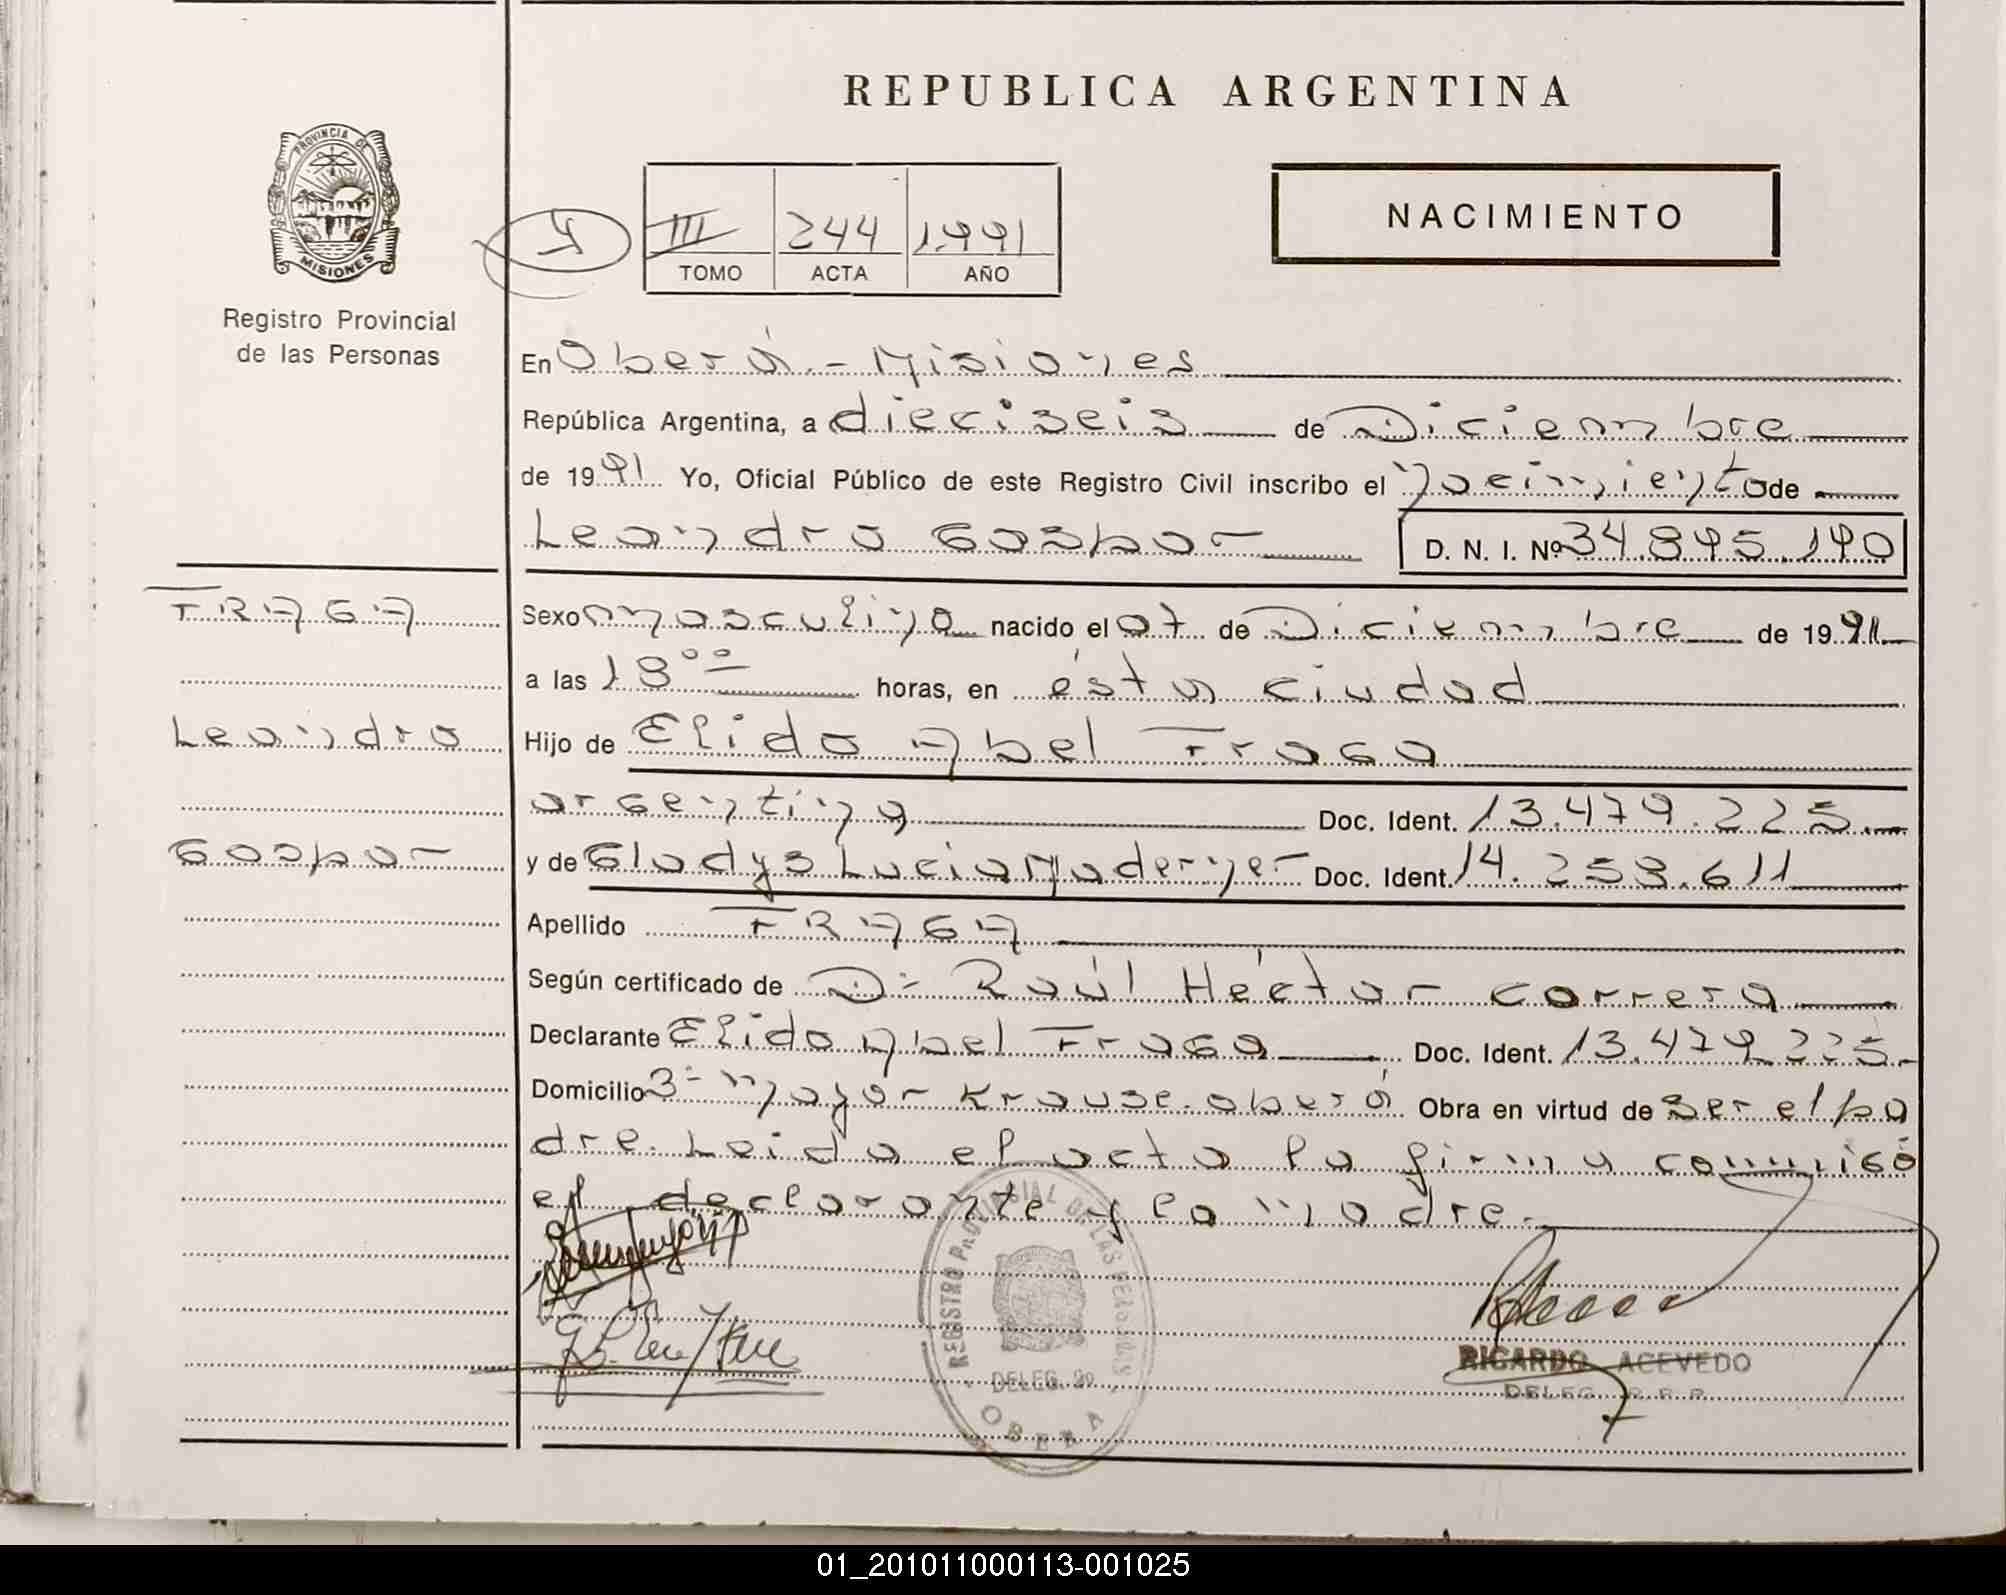 REPUBLICA ARGENTINA
PROVINCIA DE
MISIONES
Registro Provincial
de las Personas
III 244 1.991
TOMO ACTA AÑO
NACIMIENTO
En Oberá.- Misiones
República Argentina, a dieciseis de Diciembre
de 1991 Yo, Oficial Público de este Registro Civil inscribo el nacimiento de
Leandro Gaspar D. N. I. Nº 34.895.190
FRAGA
Leandro
Gaspar
Sexo masculino nacido el 07 de Diciembre de 1991
a las 18 ºº horas, en ésta ciudad
Hijo de Elido Abel Fraga
argentino Doc. Ident. 13.479.225.
y de Gladys Lucia Maderner Doc. Ident. 14.258.611
Apellido FRAGA
Según certificado de Dr Raúl Héctor Correra
Declarante Elido Abel Fraga Doc. Ident. 13.479.225.
Domicilio 3- mayor Krause.oberá Obra en virtud de ser el pa
dre. Leida el acta la firma conmigo
el declarante y la madre.
REGISTRO PROVINCIAL DE LAS PERSONAS
DELEG. 2º
OBERA
RICARDO ACEVEDO
DELEG. R.P.P.
01_201011000113-001025